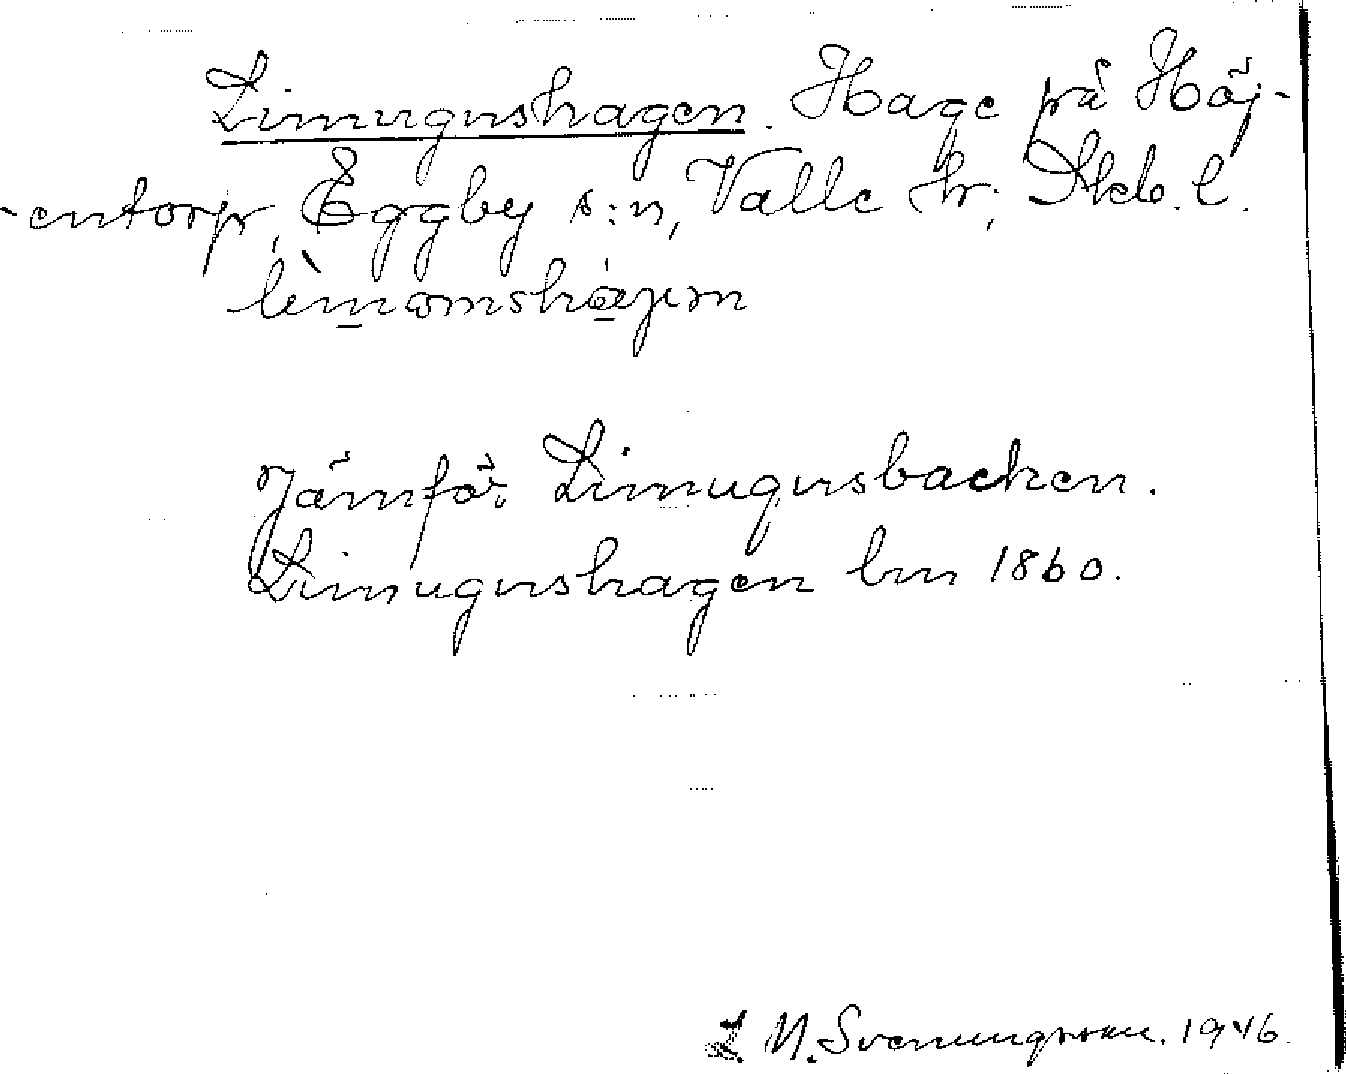 Limugnshagen. Hage på Höj-
-entorp, Eggby s:n, Valle hr, Skb. l.

Jämför Limugnsbacken.
Limugnshagen lm 1860.
S. M. Svenungsson. 1946.